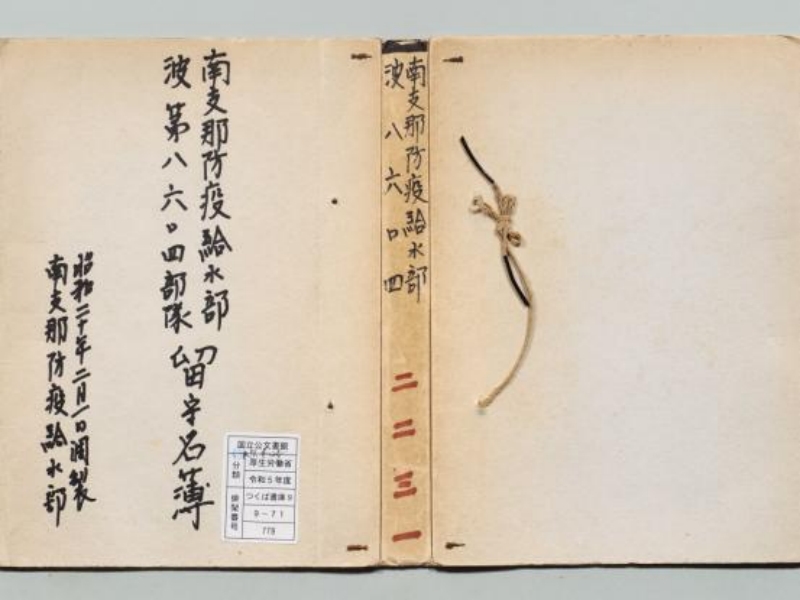 南支那防疫給水部
波第八六〇四部隊 留守名簿
昭和二十年二月一日調製
南支那防疫給水部
国立公文書館
分類
厚生労働省
令和5年度
つくば書庫9
排架番号
9-71
778
南支那防疫給水部
波八六〇四
二二三一